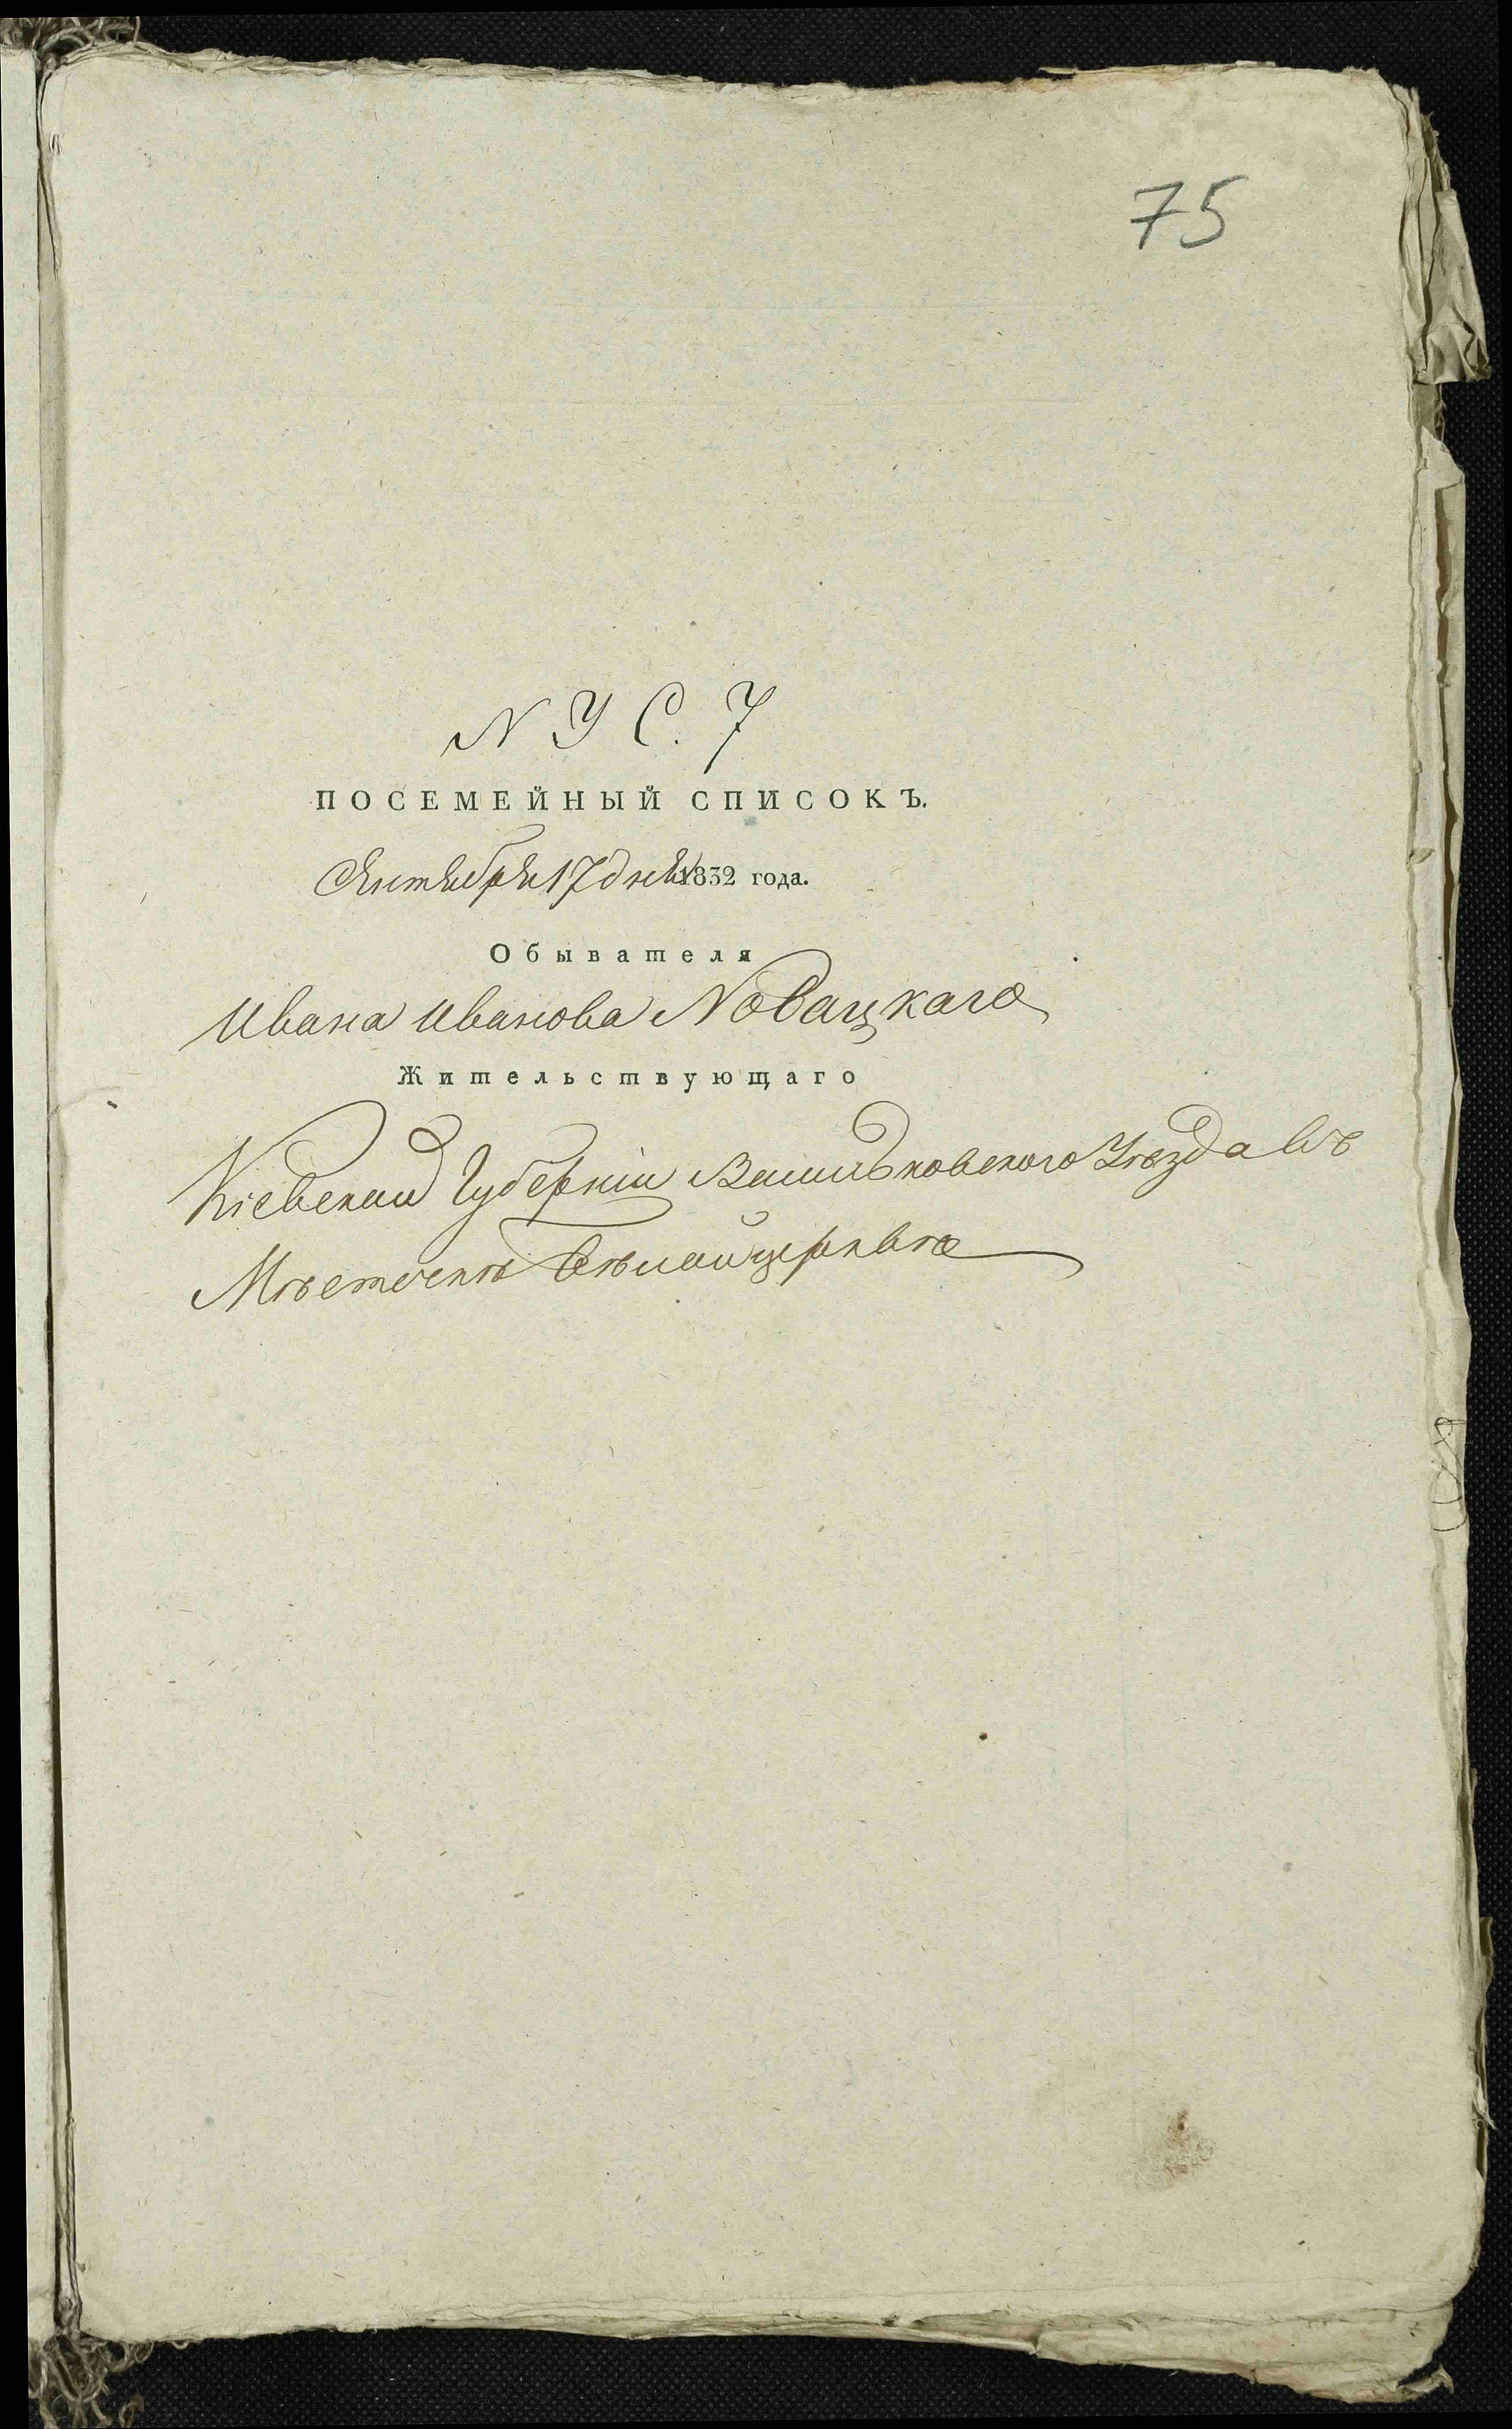 75
N У С. 7
ПОСЕМЕЙНЫЙ СПИСОКЪ.
Сентября 17 дня 1832 года.
Обывателя
Ивана Иванова Новацкаго
Жительствующаго
Кіевской Губерніи Васильковского Уѣзда въ
Мѣстечкѣ Бѣлой церквѣ